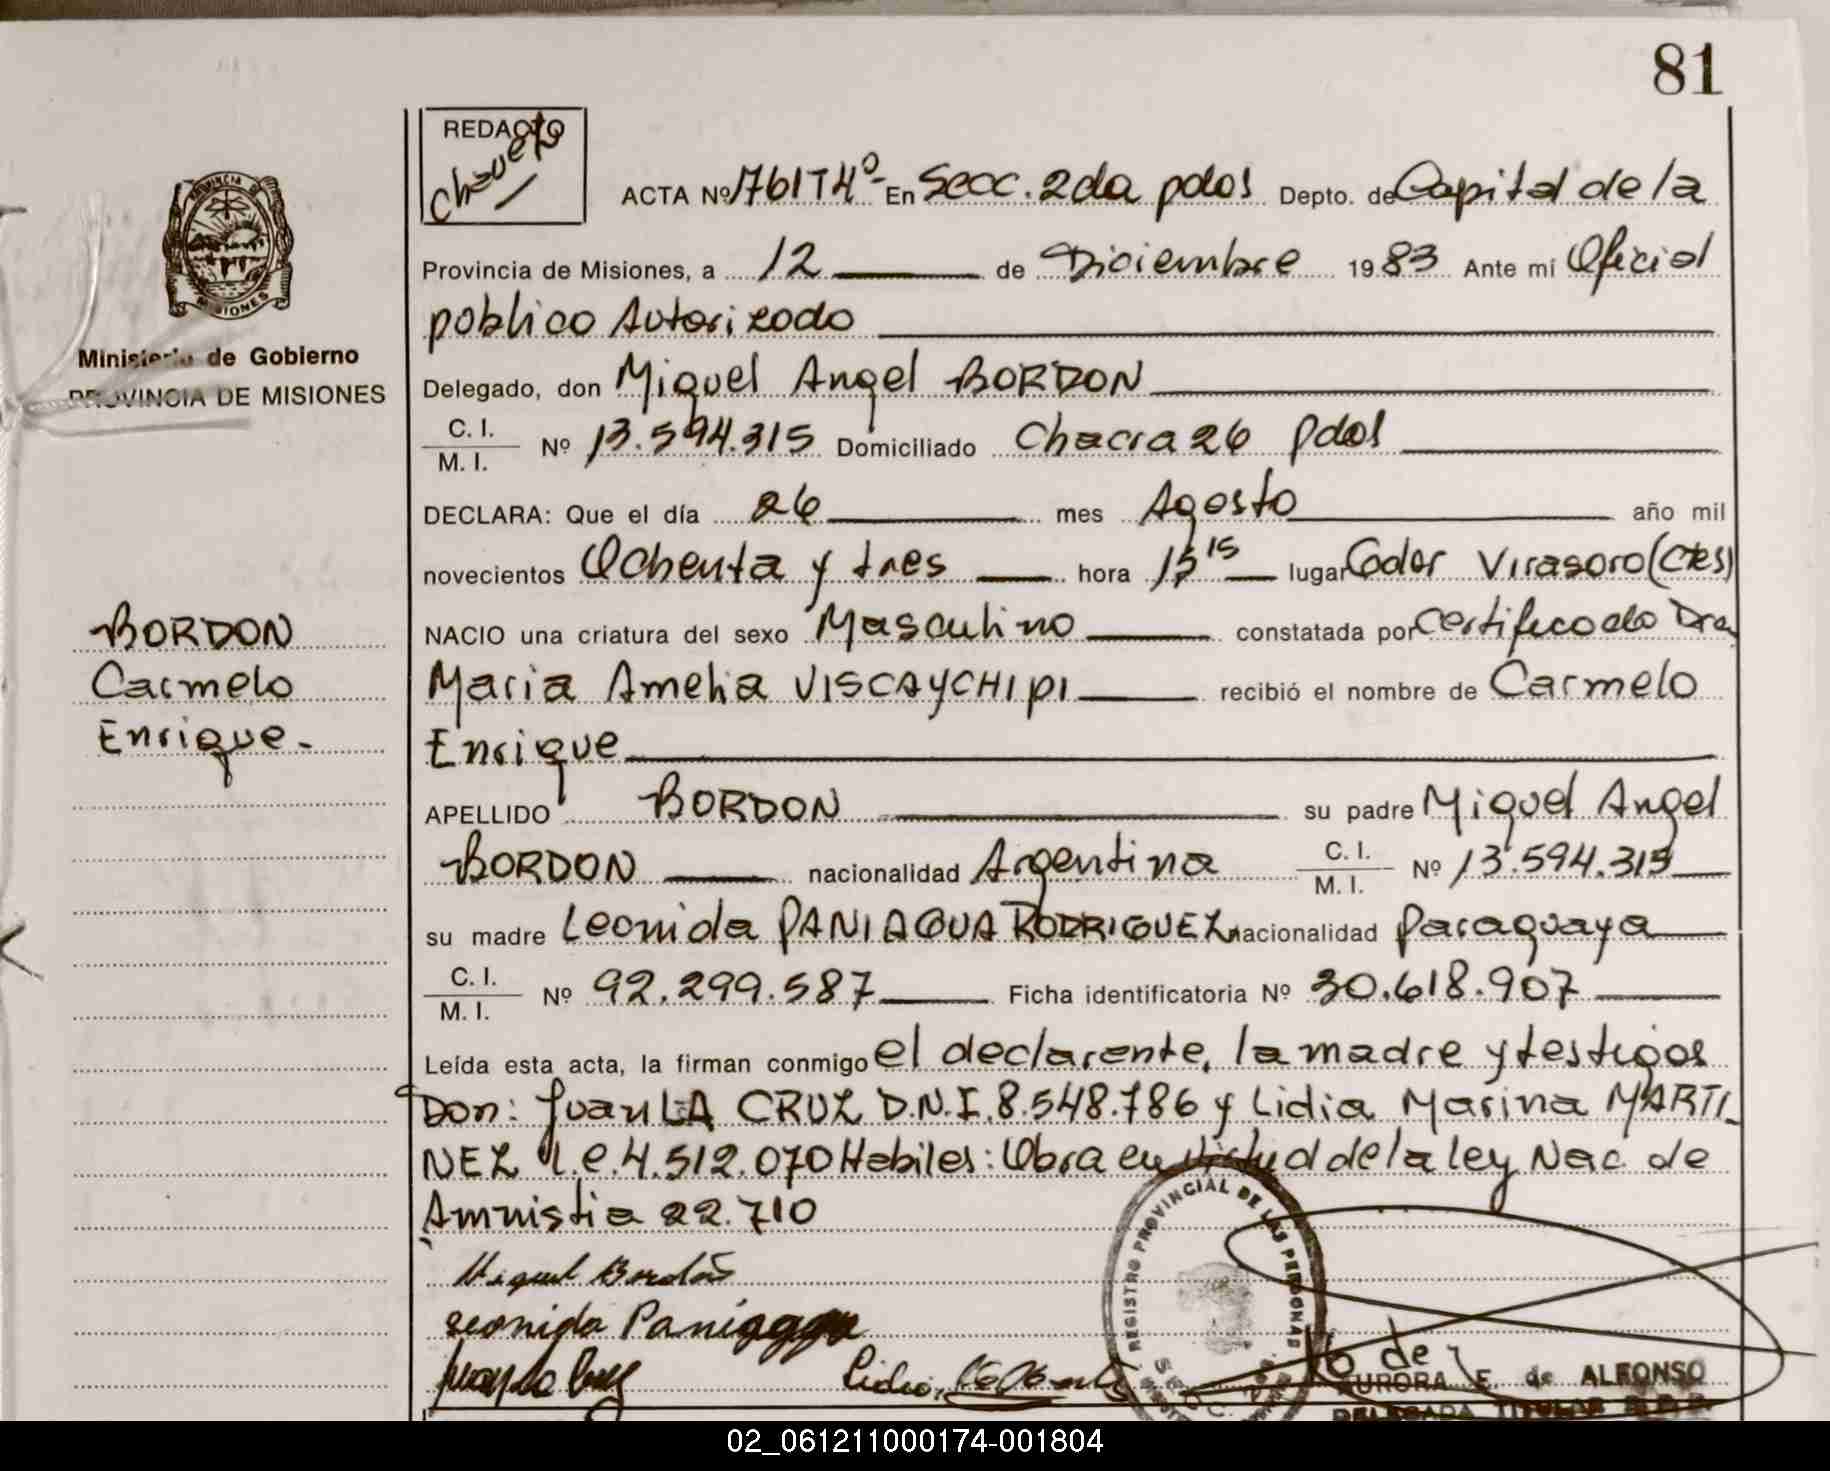 81
REDACTO
Chavez
ACTA Nº 1761 T 4º- En Secc. 2da pdas Depto. de Capital de la
Provincia de Misiones, a 12 de Diciembre 1983 Ante mí Oficial
público Autorizado
Delegado, don Miguel Angel BORDON
C. I.
M. I. Nº 13.594.315 Domiciliado Chacra 26 Pdas
DECLARA: Que el día 26 mes Agosto año mil
novecientos Ochenta y tres hora 15 15 lugar Gdor Virasoro (Ctes)
NACIO una criatura del sexo Masculino constatada por Certificado Dra
Maria Amelia VISCAYCHIPI recibió el nombre de Carmelo
Enrique
APELLIDO BORDON su padre Miguel Angel
BORDON nacionalidad Argentina C. I.
M. I. Nº 13.594.315
su madre Leonida PANIAGUA RODRIGUEZ nacionalidad Paraguaya
C. I.
M. I. Nº 92.299.587 Ficha identificatoria Nº 30.618.907
Leída esta acta, la firman conmigo el declarante, la madre y testigos
Don: Juan LA CRUZ D.N.I. 8.548.786 y Lidia Marina MARTI
NEZ L.C. 4.512.070 Habiles: Obra en virtud de la ley Nac de
Amnistia 22.710
Miguel Bordón
Leonida Paniagua
Juan La Cruz Lidia
REGISTRO PROVINCIAL DE LAS PERSONAS
AURORA E. de ALFONSO
DELEGADA TITULAR
MISIONES
Ministerio de Gobierno
PROVINCIA DE MISIONES
BORDON
Carmelo
Enrique.-
02_061211000174-001804